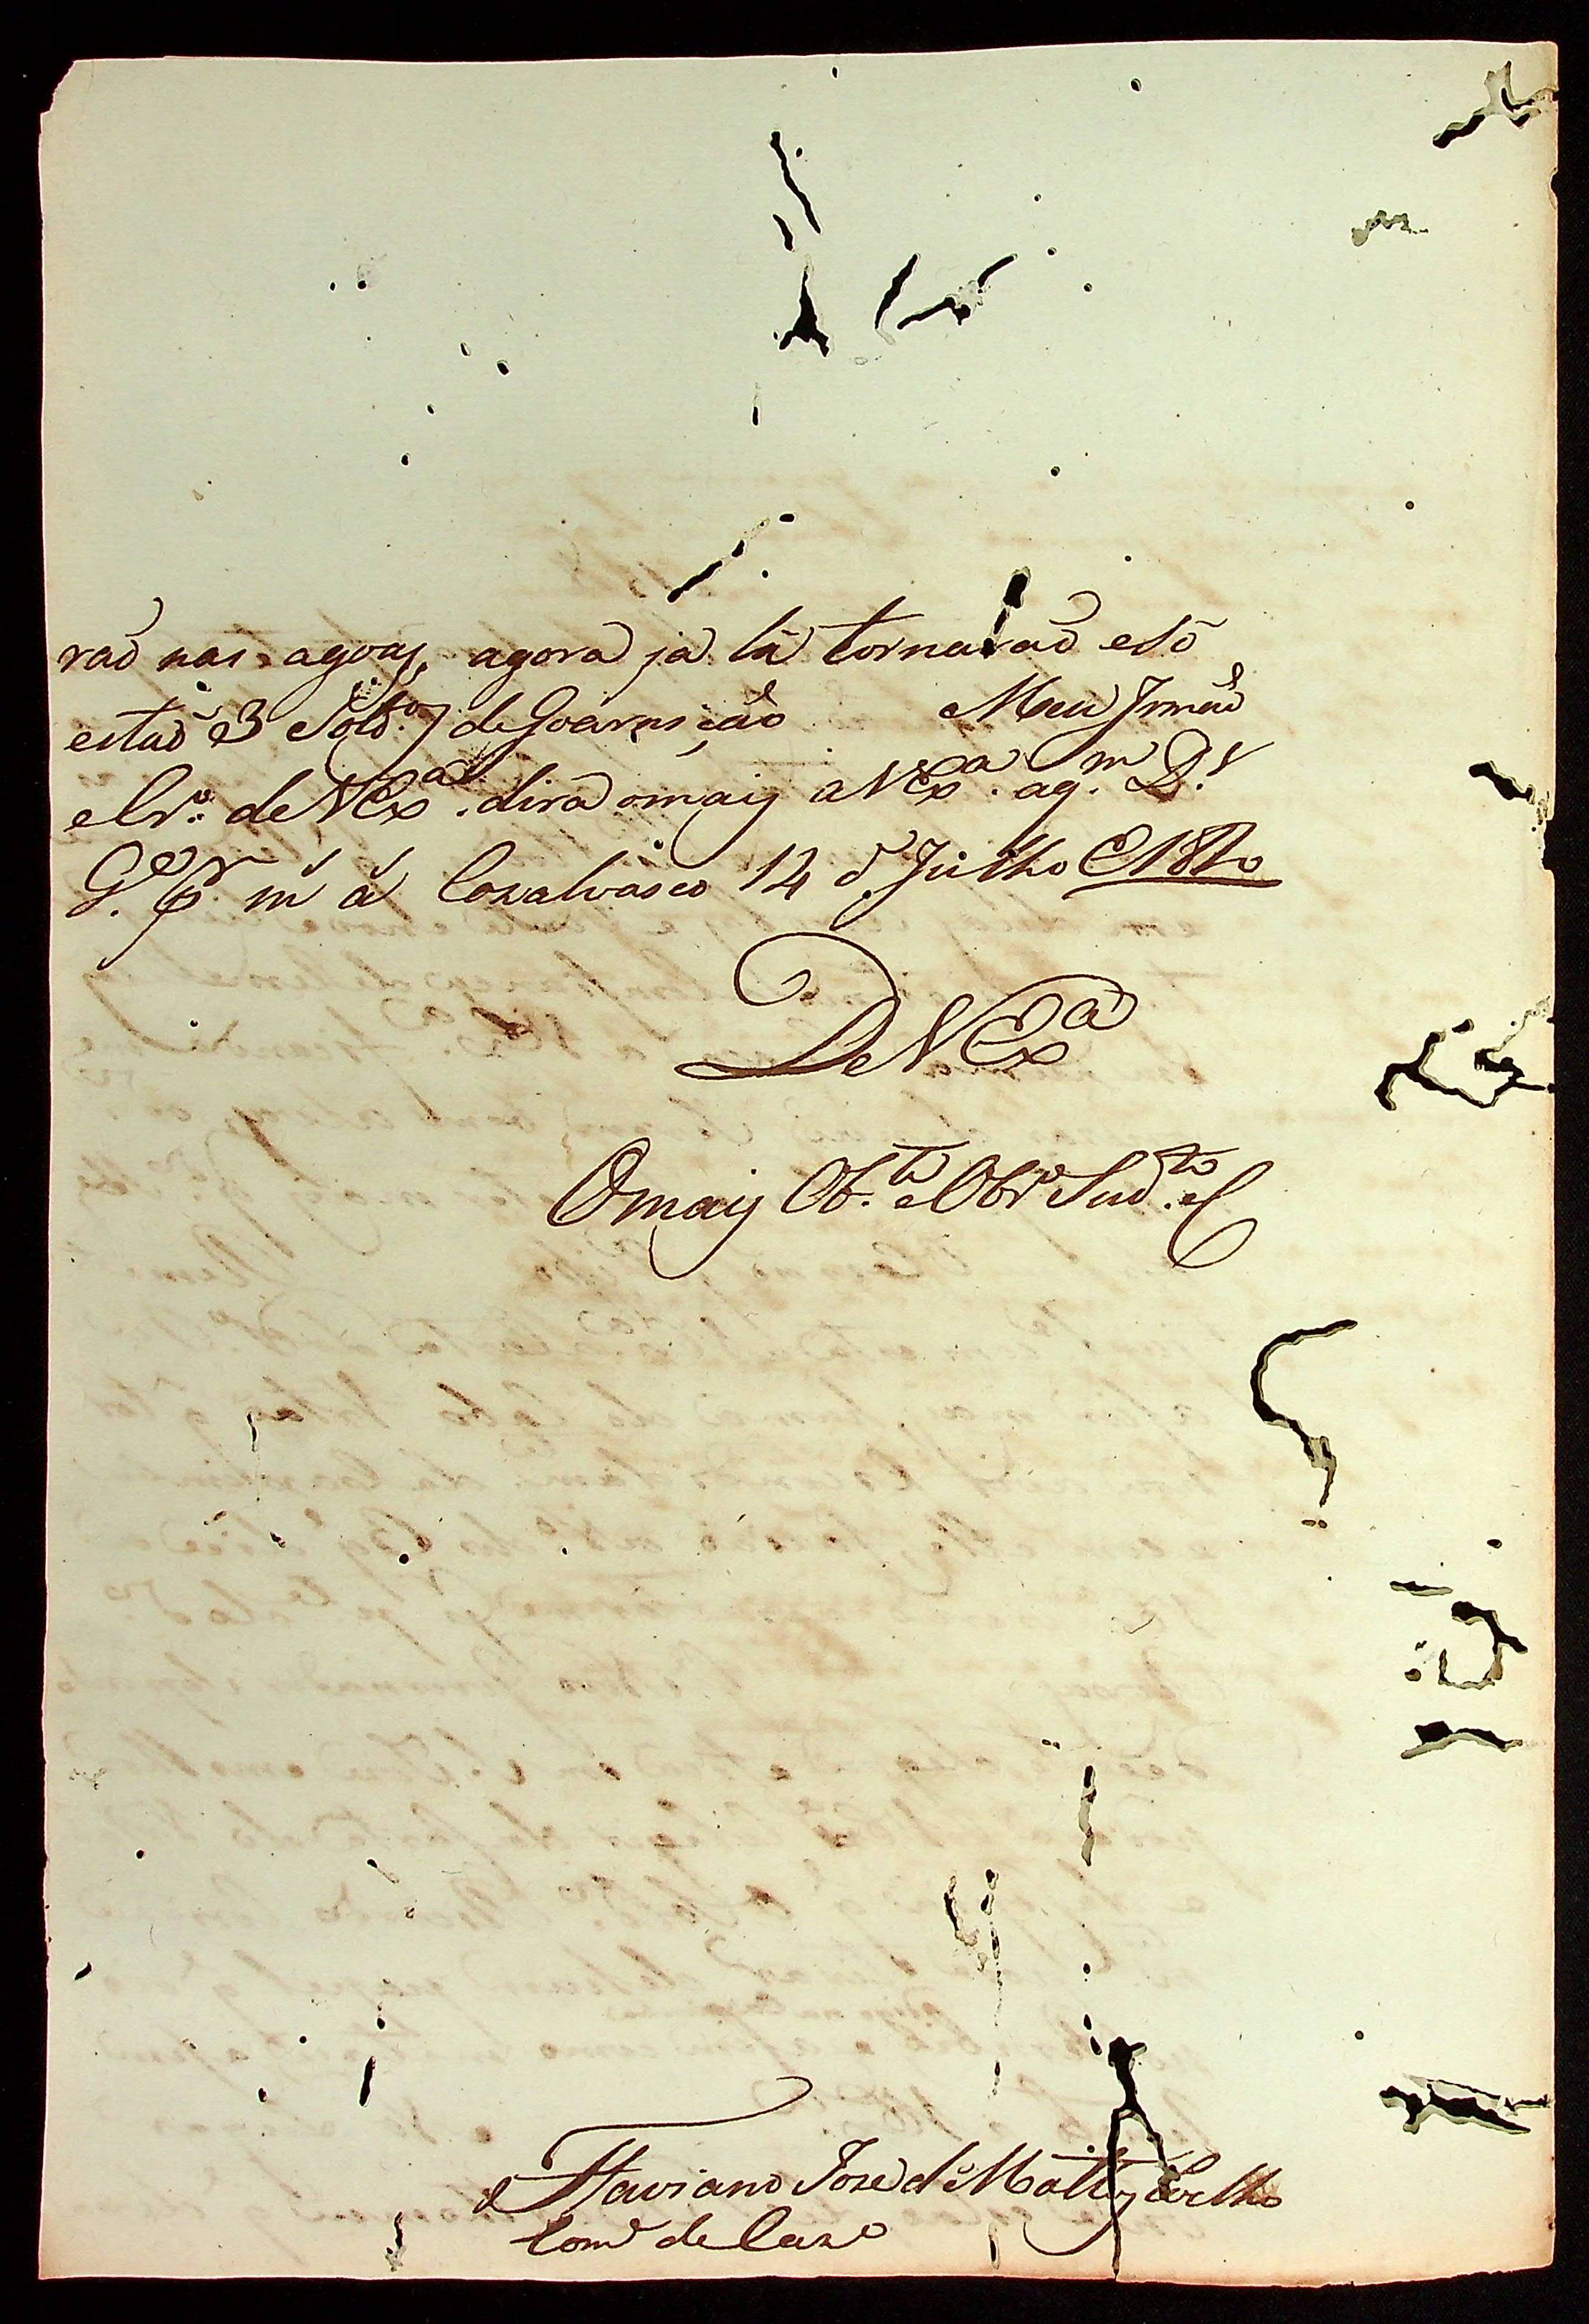 raõ nas agoas, agora já lá tornaraõ e só
estaõ 3 Sold.os de Goarnição Meu Irmaõ
e Cr.o de V Ex.a dirá o mais a V Ex.a a q.m D.s
G.e p.r m a Cazalvasco 14 d Julho 1820
De V Ex.a
O mais Ob.te e Obr.o Sud.to
Flaviano Joze de Mattos Coelho
Com.e de Cazo